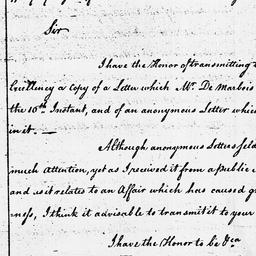 Sir
I have the Honor of transmitting
Excellency a Copy of a Letter which Mr. De Marbois
the 16th Instant, and of an anonymous Letter which
in it. —
Although anonymous Letters seld
much Attention, yet as I received it from a public
and as it relates to an Affair which has caused
ness, I think it advisable to transmit it to your
I have the Honor to be &ca